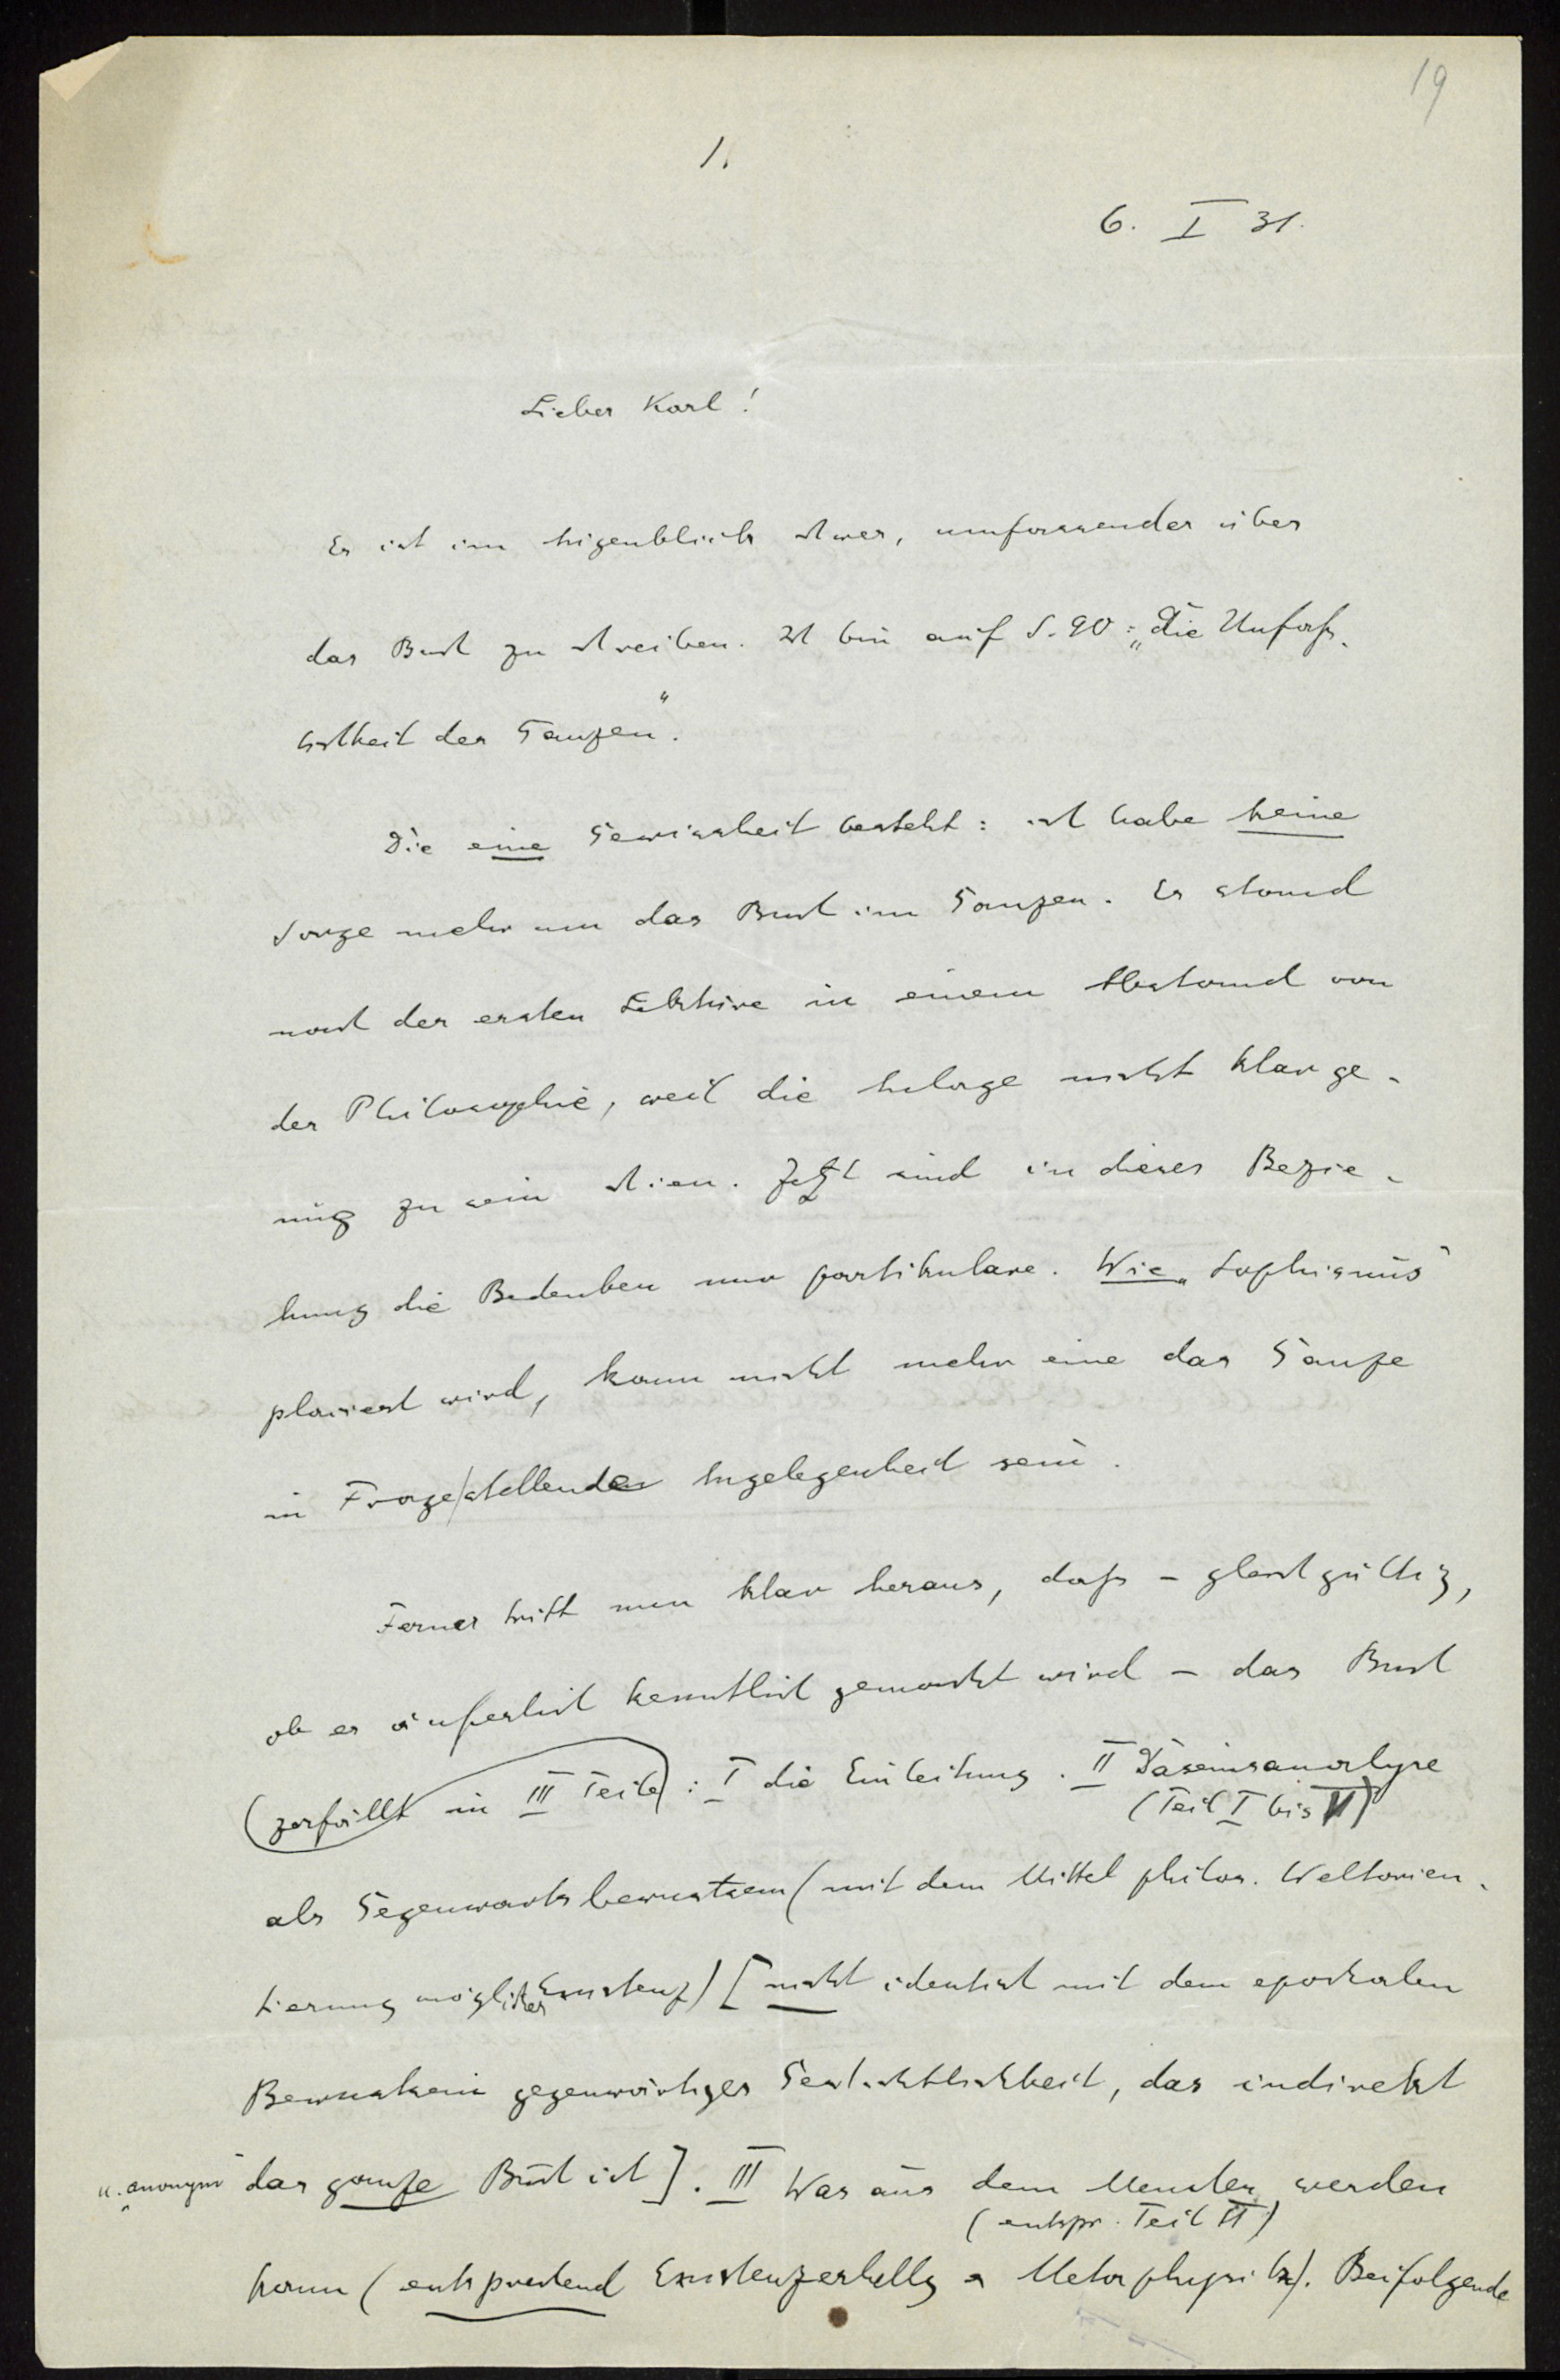 19
1.
6. I 31.
Lieber Karl!
Es ist im Augenblick schwer, umfassender über
das Buch zu schreiben. Ich bin auf S. 90: „Die Unfaß-
barkeit des Ganzen“.
Die eine Gewissheit besteht: ich habe keine
Sorge mehr um das Buch im Ganzen. Es stand
nach der ersten Lektüre in einem Abstand von
der Philosophie, weil die Anlage nicht klar ge-
nug zu sein schien. Jetzt sind in dieser Bezie-
hung die Bedenken nur partikulare. Wie „Sophismus“
plaziert wird, kann nicht mehr eine das Ganze
in Frage/stellende Angelegenheit sein.
Ferner tritt nun klar heraus, daß – gleichgültig,
ob es äußerlich kenntlich gemacht wird – das Buch
(zerfällt in III Teile): I die Einleitung. II Daseinsanalyse
(Teil I bis V)
als Gegenwartsbewusstsein (mit dem Mittel philos. Weltorien-
tierung möglicher Existenz) [nicht identisch mit dem epochalen
Bewusstsein gegenwärtiger Geschichtlichkeit, das indirekt
u. anonym das ganze Buch ist]. III Was aus dem Menschen werden
(entspr. Teil VI)
kann (entsprechend Existenzerhellg u Metaphysik). Beifolgende